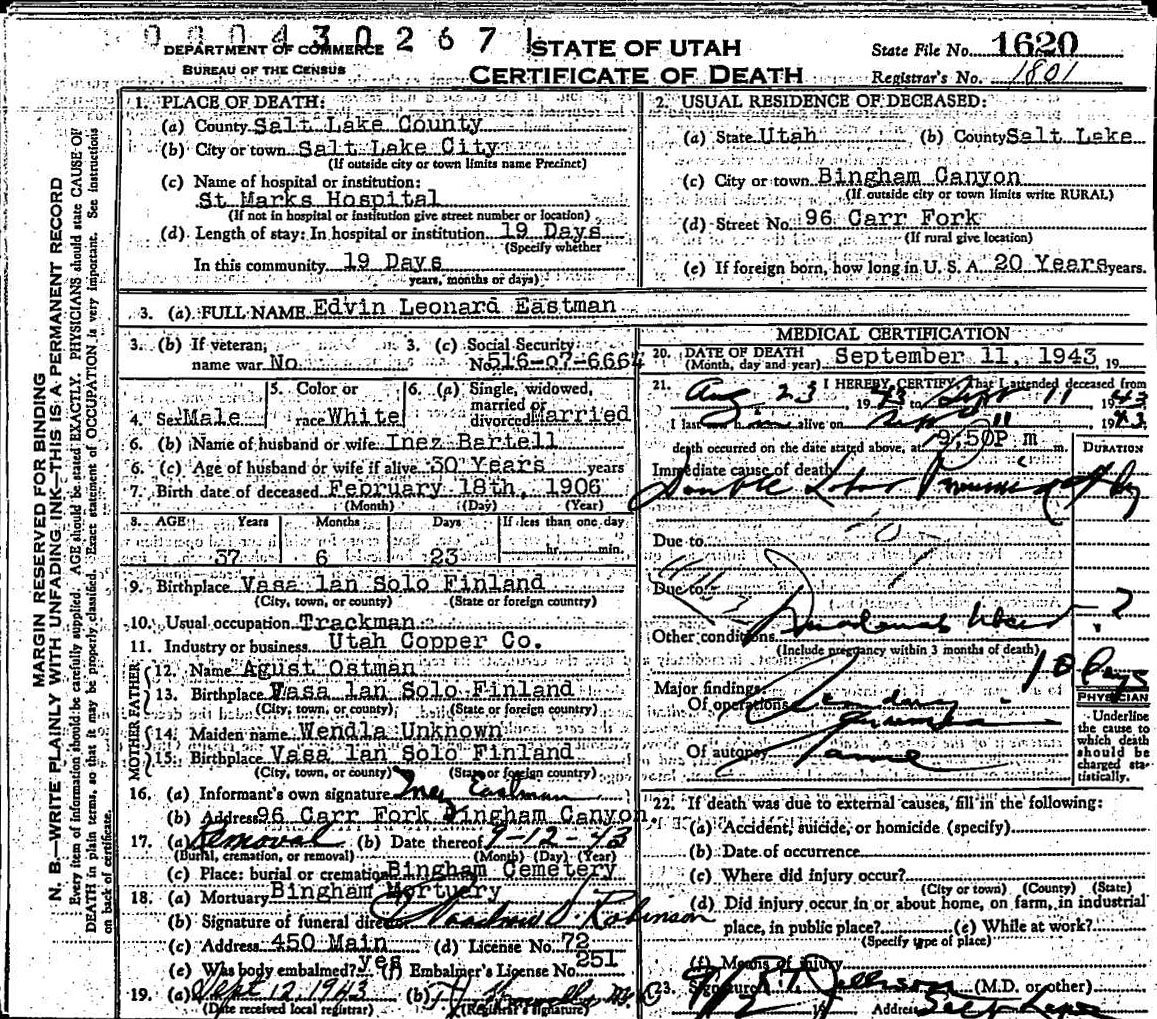 0004 30267
DEPARTMENT OF COMMERCE
BUREAU OF THE CENSUS
STATE OF UTAH
CERTIFICATE OF DEATH
State File No. 1620
Registrar's No. 1801
MARGIN RESERVED FOR BINDING
N. B.—WRITE PLAINLY WITH UNFADING INK—THIS IS A PERMANENT RECORD
Every item of information should be carefully supplied. AGE should be stated EXACTLY. PHYSICIANS should state CAUSE OF
DEATH in plain terms, so that it may be properly classified. Exact statement of OCCUPATION is very important. See instructions
on back of certificate.
1. PLACE OF DEATH:
(a) County Salt Lake County
(b) City or town Salt Lake City
(If outside city or town limits name Precinct)
(c) Name of hospital or institution:
St Marks Hospital
(If not in hospital or institution give street number or location)
(d) Length of stay: In hospital or institution 19 Days
(Specify whether
In this community 19 Days
years, months or days)
2. USUAL RESIDENCE OF DECEASED:
(a) State Utah (b) County Salt Lake
(c) City or town Bingham Canyon
(If outside city or town limits write RURAL)
(d) Street No. 96 Carr Fork
(If rural give location)
(e) If foreign born, how long in U. S. A. 20 Years years.
3. (a) FULL NAME Edvin Leonard Eastman
3. (b) If veteran, name war No
3. (c) Social Security No. 516-07-6664
4. Sex Male
5. Color or race White
6. (a) Single, widowed, married or divorced Married
6. (b) Name of husband or wife Inez Bartell
6. (c) Age of husband or wife if alive 30 Years years
7. Birth date of deceased February 18th, 1906
(Month) (Day) (Year)
8. AGE Years Months Days If less than one day
37 6 23 hr. min.
9. Birthplace Vasa lan Solo Finland
(City, town, or county) (State or foreign country)
10. Usual occupation Trackman
11. Industry or business Utah Copper Co.
FATHER
12. Name Agust Ostman
13. Birthplace Vasa lan Solo Finland
(City, town, or county) (State or foreign country)
MOTHER
14. Maiden name Wendla Unknown
15. Birthplace Vasa lan Solo Finland
(City, town, or county) (State or foreign country)
16. (a) Informant's own signature Inez Eastman
(b) Address 96 Carr Fork Bingham Canyon.
17. (a) Removal (b) Date thereof 9-12-43
(Burial, cremation, or removal) (Month) (Day) (Year)
(c) Place: burial or cremation Bingham Cemetery
18. (a) Mortuary Bingham Mortuery
(b) Signature of funeral director Robinson
(c) Address 450 Main (d) License No. 72
(e) Was body embalmed? yes (f) Embalmer's License No. 251
19. (a) Sept 12, 1943 (b)
(Date received local registrar) (Registrar's signature)
MEDICAL CERTIFICATION
20. DATE OF DEATH September 11, 1943, 19
(Month, day and year)
21. I HEREBY CERTIFY That I attended deceased from
Aug 23, 1943 to Sept 11 1943
I last saw him alive on Sept 11 1943
death occurred on the date stated above, at 9;50P m m.
DURATION
Immediate cause of death
Double Lobar
Due to
Due to
Other conditions
(Include pregnancy within 3 months of death)
10 Days
Major findings:
Of operations
Of autopsy
PHYSICIAN
Underline
the cause to
which death
should be
charged sta-
tistically.
22. If death was due to external causes, fill in the following:
(a) Accident, suicide, or homicide (specify)
(b) Date of occurrence
(c) Where did injury occur?
(City or town) (County) (State)
(d) Did injury occur in or about home, on farm, in industrial
place, in public place? (e) While at work?
(Specify type of place)
(f) Means of injury
23. Signature (M.D. or other)
Address Salt Lake